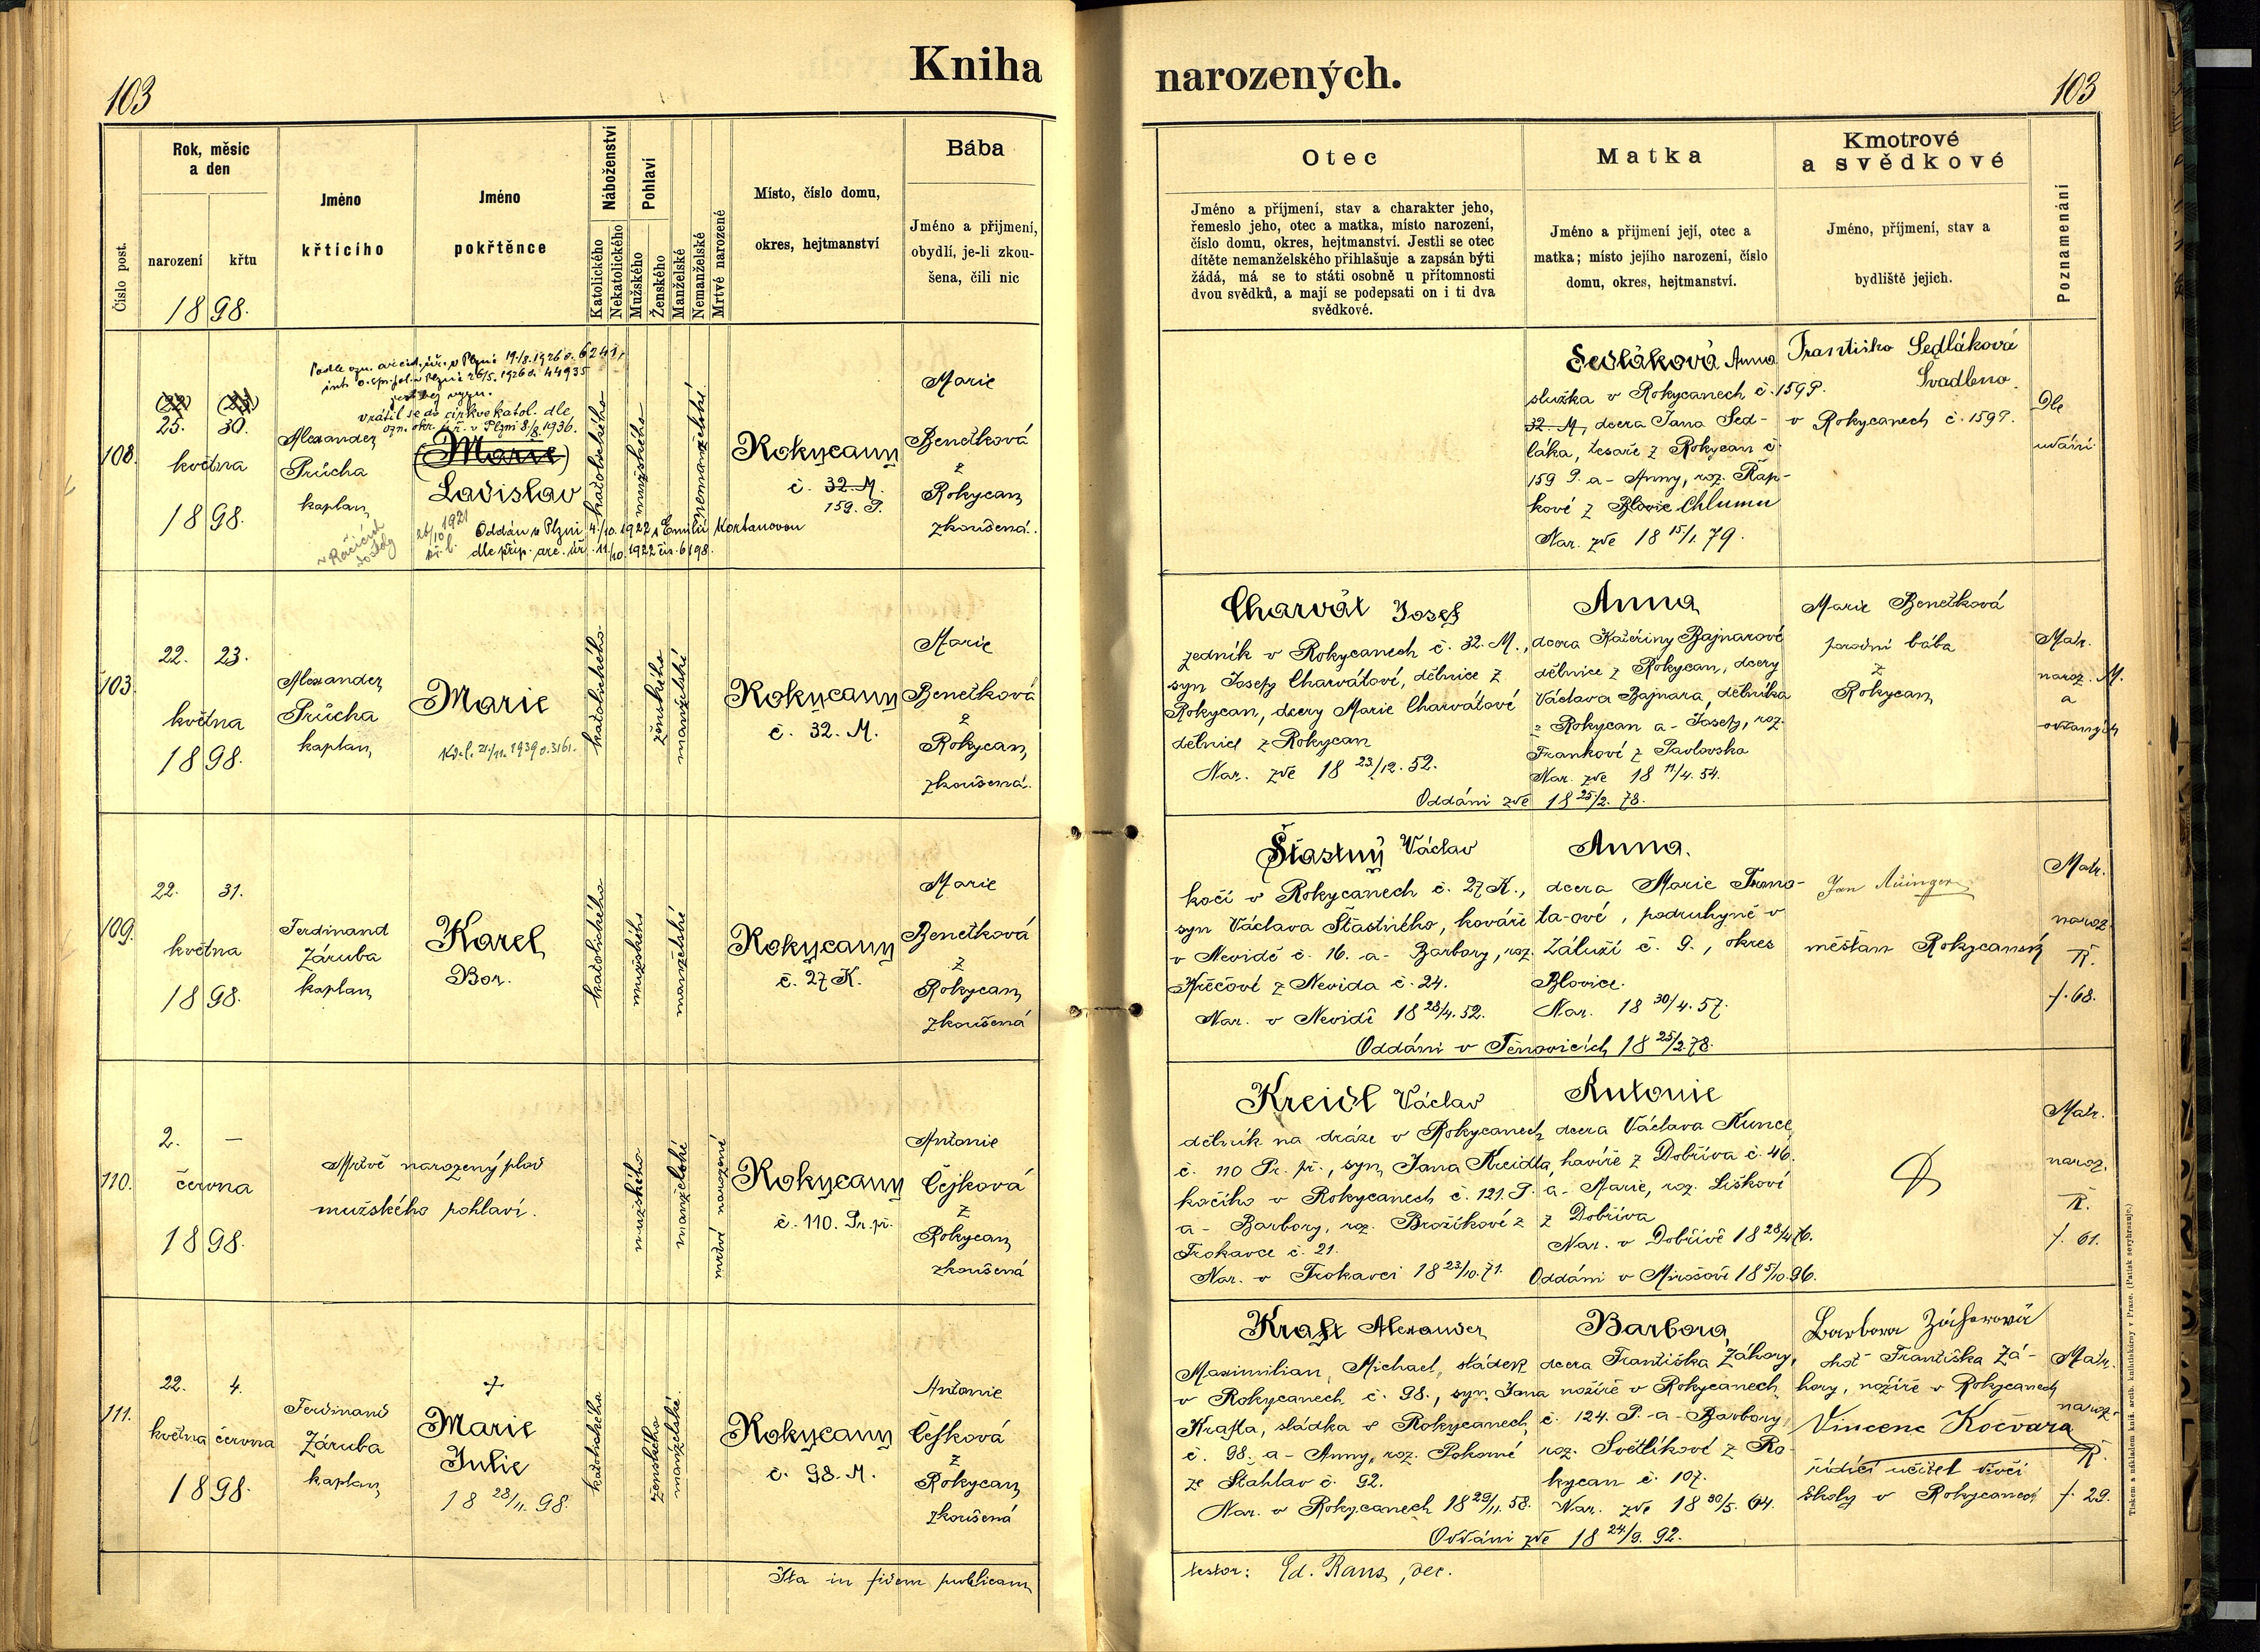 Kniha narozených.
103
103
Číslo post.
Rok, měsíc
a den
narození
křtu
1898.
Jméno
křtícího
Jméno
pokřtěnce
Náboženství
Katolického
Nekatolického
Pohlaví
Mužského
Ženského
Manželské
Nemanželské
Mrtvé narozené
Místo, číslo domu,
okres, hejtmanství
Bába
Jméno a přijmení,
obydlí, je-li zkou-
šena, čili nic
Otec
Jméno a příjmení, stav a charakter jeho,
řemeslo jeho, otec a matka, místo narození,
číslo domu, okres, hejtmanství. Jestli se otec
dítěte nemanželského přihlašuje a zapsán býti
žádá, má se to státi osobně u přítomnosti
dvou svědků, a mají se podepsati on i ti dva
svědkové.
Matka
Jméno a přijmení její, otec a
matka; místo jejího narození, číslo
domu, okres, hejtmanství.
Kmotrové
a svědkové
Jméno, příjmení, stav a
bydliště jejich.
Poznamenání
108.
25. 30.
května
1898.
Alexander
Průcha
kaplan
vrátil se do církve katol. dle
ozn. okr. úř. v Plzni 8/8. 1936.
(Marie)
Ladislav
26/10 1921
Oddán v Plzni 4/10. 1922 s Emilií Kortanovou
dle příp. arc. úř. 11/10. 1922 čís. 6198.
katolického
mužského
nemanželské
Rokycany
č. 32. M.
159. P.
Marie
Benešková
z
Rokycan
zkoušená.
Sedláková Anna
služka v Rokycanech č. 159 P.
32. M, dcera Jana Sed-
láka, tesaře z Rokycan č.
159 P. a - Anny, roz. Řáp-
kové z Blovic Chlumu
Nar. zde 18 15/1. 79.
Františka Sedláková
Svadlena
v Rokycanech č. 159 P.
Dle
udání
103.
22. 23.
května
1898.
Alexander
Průcha
kaplan
Marie
Kř. l. 21/11. 1939 č. 3161.
katolického
ženského
manželské
Rokycany
č. 32. M.
Marie
Benešková
z
Rokycan
zkoušená.
Charvát Josef
zedník v Rokycanech č. 32. M.,
syn Josefy Charvátové, dělnice z
Rokycan, dcery Marie Charvátové
dělnice z Rokycan
Nar. zde 18 23/12. 52.
Anna
dcera Kateřiny Bajnarové
dělnice z Rokycan, dcery
Václava Bajnara, dělníka
z Rokycan a - Josefy, roz.
Frankové z Pavlovska
Nar. zde 18 11/4. 54.
Oddáni zde 18 25/2. 78.
Marie Benešková
porodní bába
z
Rokycan
Matr.
naroz. M.
a
oddaných
109.
22. 31.
května
1898.
Ferdinand
Záruba
kaplan
Karel
Bor.
katolického
mužského
manželské
Rokycany
č. 27 K.
Marie
Benešková
z
Rokycan
zkoušená
Šťastný Václav
kočí v Rokycanech č. 27 K.,
syn Václava Šťastného, kováře
v Nevidě č. 16. a - Barbory, roz.
Křečové z Nevida č. 24.
Nar. v Nevidě 18 28/4. 52.
Anna.
dcera Marie Frano-
ta-ové, podruhyně v
Záluží č. 9., okres
Blovice.
Nar. 18 30/4. 57.
Oddáni v Těnovicích 18 25/2. 78.
měšťan Rokycanský
Matr.
naroz.
R.
f. 68.
110.
2. —
června
1898.
Mrtvě narozený plod
mužského pohlaví.
mužského
manželské
mrtvé narozené
Rokycany
č. 110. Pr. př.
Antonie
Čejková
z
Rokycan
zkoušená
Kreidl Václav
dělník na dráze v Rokycanech
č. 110 Pr. př., syn Jana Kreidla,
kočího v Rokycanech č. 121. P.
a - Barbory, roz. Brožíkové z
Trokavce č. 21.
Nar. v Trokavci 18 23/10. 71.
Antonie
dcera Václava Kunce,
havíře z Dobříva č. 46.
a - Marie, roz. Liškové
z Dobříva
Nar. v Dobřívě 18 28/4 76.
Oddáni v Mirošově 18 5/10. 96.
Matr.
naroz.
R.
f. 61.
111.
22. 4.
května června
1898.
Ferdinand
Záruba
kaplan
†
Marie
Julie
18 28/11. 98.
katolického
ženského
manželské
Rokycany
č. 98. M.
Antonie
Čejková
z
Rokycan
zkoušená
Kraft Alexander
Maximilian, Michael, sládek
v Rokycanech č. 98., syn Jana
Krafta, sládka v Rokycanech
č. 98. a - Anny, roz. Pokorné
ze Šťahlav č. 92.
Nar. v Rokycanech 18 29/11. 58.
Barbora,
dcera Františka Záhory,
nožíře v Rokycanech
č. 124. P. a - Barbory,
roz. Světlíkové z Ro-
kycan č. 107.
Nar. zde 18 30/5. 64.
Oddáni zde 18 24/9. 92.
Barbora Záhorová
choť Františka Zá-
hory, nožíře v Rokycanech
Vincenc Kočvara
řídící učitel dívčí
školy v Rokycanech
Matr.
naroz.
R.
f. 29.
Ita in fidem publicam
testor: Ed. Rans, dec.
Tiskem a nákladem kníž. arcib. knihtiskárny v Praze. (Patisk se vyhrazuje.)